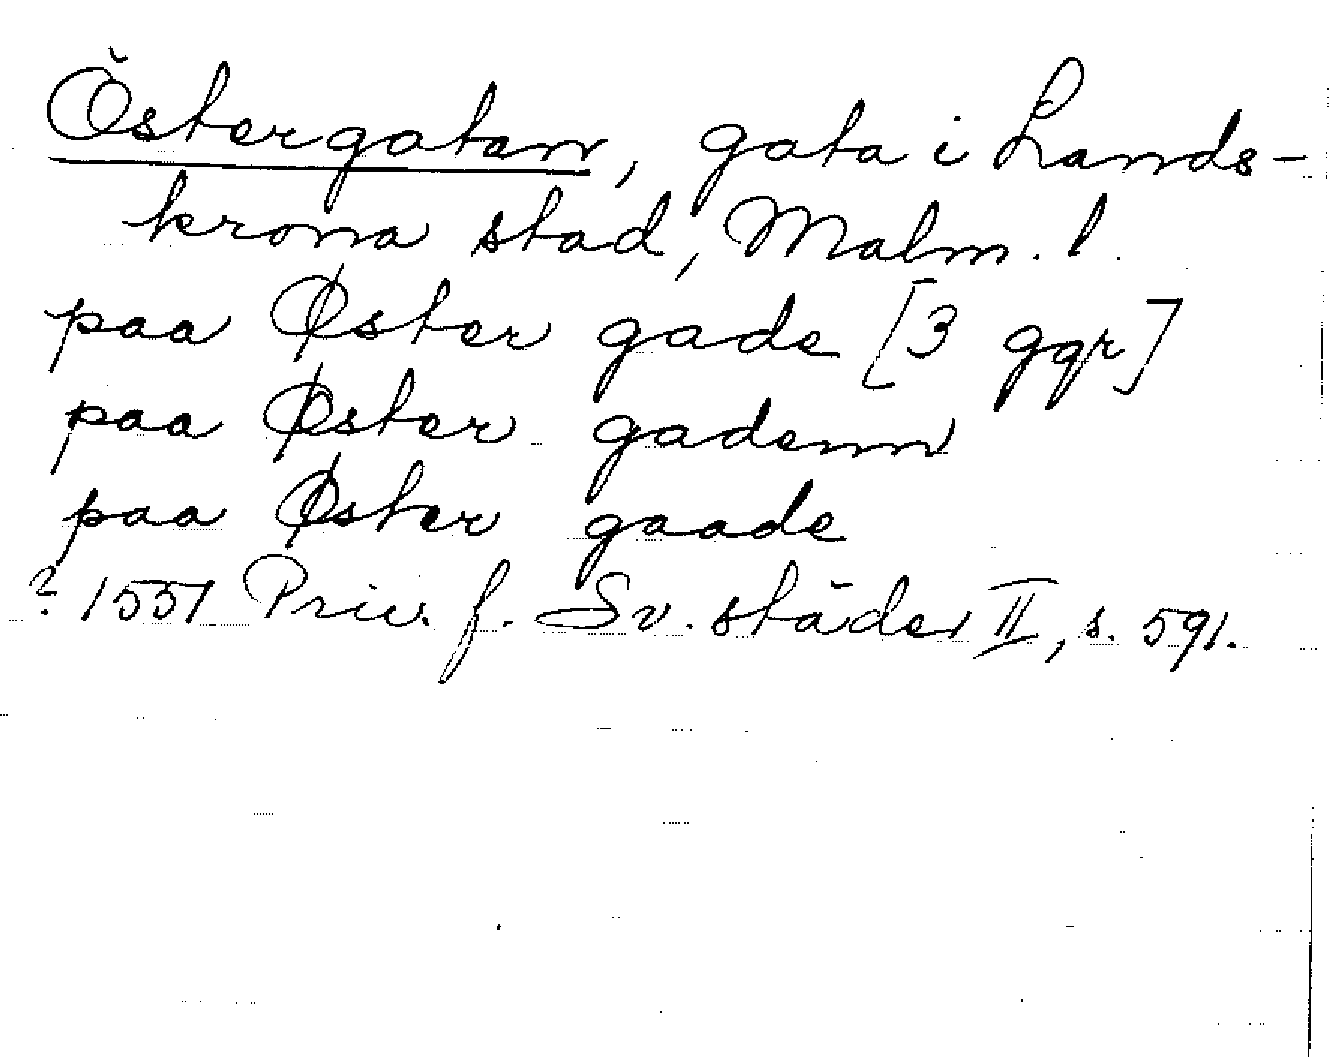 Östergatan, gata i Lands-
krona stad, Malm. l.
paa Øster gade [3 ggr]
paa Øster gadenn
paa Øster gaade
? 1551 Priv. f. Sv. städer II, s. 591.